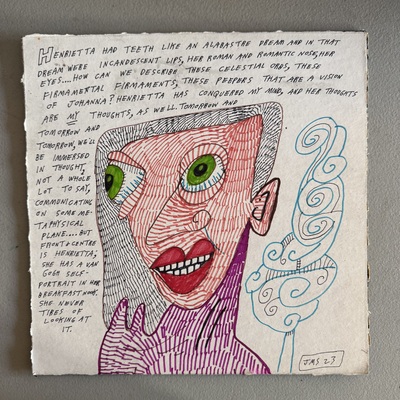 HENRIETTA HAD TEETH LIKE AN ALABASTRE DREAM AND IN THAT
DREAM WERE INCANDESCENT LIPS, HER ROMAN AND ROMANTIC NOSE, HER
EYES....HOW CAN WE DESCRIBE THESE CELESTIAL ORBS, THESE
FIRMAMENTAL FIRMAMENTS, THESE PEEPERS THAT ARE A VISION
OF JOHANNA? HENRIETTA HAS CONQUERED MY MIND, AND HER THOUGHTS
ARE MY THOUGHTS, AS WELL. TOMORROW AND
TOMORROW AND
TOMORROW, WE'LL
BE IMMERSED
IN THOUGHT,
NOT A WHOLE
LOT TO SAY,
COMMUNICATING
ON SOME ME-
TAPHYSICAL
PLANE.... BUT
FRONT & CENTRE
IS HENRIETTA;
SHE HAS A VAN
GOGH SELF-
PORTRAIT IN HER
BREAKFAST NOOK.
SHE NEVER
TIRES OF
LOOKING AT
IT.
JMS 23